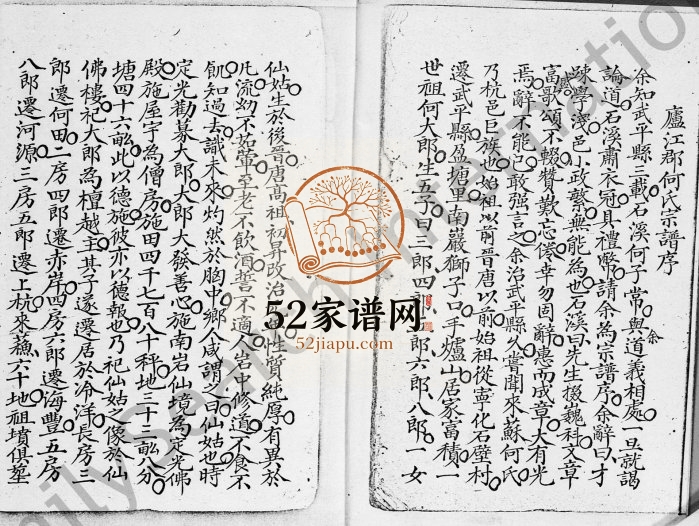 廬江郡何氏宗譜序
余知武平縣三載石溪何子常與余道義相處一旦就謁
論道石溪肅衣冠具禮幣請余為宗譜序余辭曰才
疎學淺邑小政繁無能為也石溪曰先生掇巍科文章
富歌頌不輟贊歎忘倦幸勿固辭惠而成章大有光
焉辭不能已敢強言之余治武平縣久嘗聞來蘇何氏
乃杭邑巨族也始祖以前晉唐以前始祖從寧化石壁村
遷武平縣盈塘里南巖獅子口手爐山居家富積一
世祖何大郎生五子曰三郎四郎五郎六郎八郎一女
仙姑生於後晉唐高祖初昇改治性質純厚有異於
凡流幼不茹葷至老不飲酒誓不適人岩中修道不食不
飢知過去識未來灼然於胸中鄉人咸謂之曰仙姑也時
定光勸募大郎大郎大發善心施南岩仙境為定光佛
殿施屋宇為僧房施田四千七百八十秤地三十三畝八分
塘四十六畝此以德施彼亦以德報也乃祀仙姑之像於仙
佛樓祀大郎為檀越主其子遂遷居於冷洋長房三
郎遷何田二房四郎遷赤岸四房六郎遷海豐五房
八郎遷河源三房五郎遷上杭來蘇六十地祖墳俱塟
52家谱网
52jiapu.com
FamilySearch International